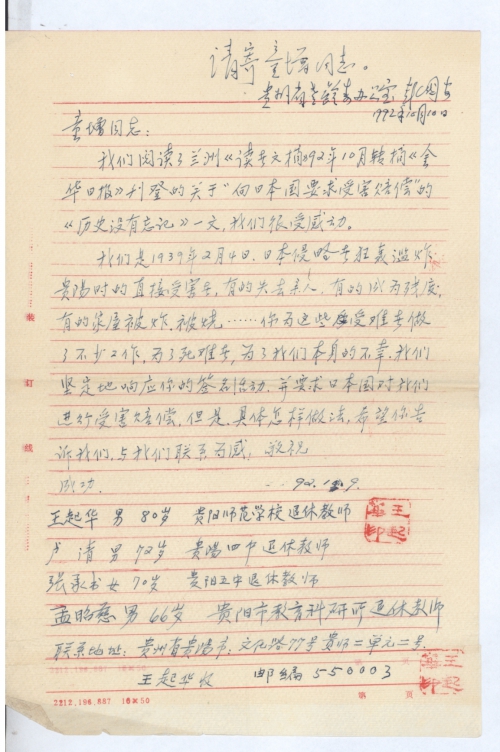 请寄童增同志。
贵州省老龄委办公室
1992年10月10日
童增同志：
我们阅读了兰洲《读者文摘》92年10月转摘《金
华日报》刊登的关于“向日本国要求受害赔偿”的
《历史没有忘记》一文，我们很受感动。
我们是1939年2月4日、日本侵略者狂轰滥炸
贵阳时的直接受害者，有的失去亲人，有的成为残废，
有的家屋被炸、被烧……你为这些受难者做
了不少工作，为了死难者，为了我们本身的不幸，我们
坚定地响应你的签名活动，并要求日本国对我们
进行受害赔偿，但是，具体怎样做法，希望你告
诉我们，与我们联系为感，敬祝
成功。
92.10.9.
王起华 男 80岁 贵阳师范学校退休教师
卢清 男 72岁 贵阳四中退休教师
张承书 女 70岁 贵阳五中退休教师
孟昭慈 男 66岁 贵阳市教育科研所退休教师
联系地址：贵州省贵阳市，文化路77号贵师二单元二号
王起华收 邮编 550003
王起华印
王起华印
装
订
线
2212.196.887 16×50
第 页